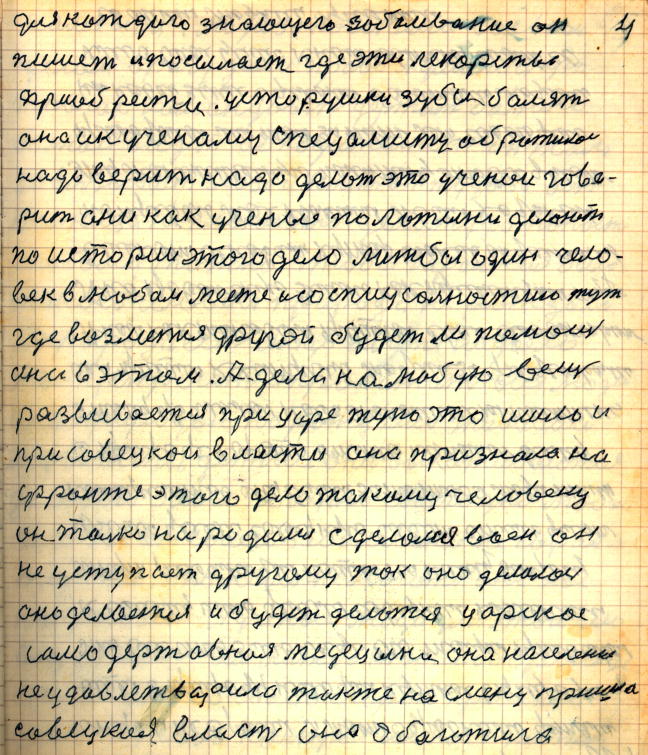 для каждого знающего зобаливание он 4
пишет и посылает где эти лекарства
приобрести. у старушки зубы балят
она и к ученаму специалисту обротилась
надо верит надо делат это ученои гово-
рит они как ученые положили делают
по истории этого дело лижбы один чело-
век в любам месте
где возметя другой будет ли помощ
она в этом. А дела на любую вещ
развивается при царе тупо это шило и
при совецкои власти она признала на
фронте этого дело такому человеку
он толко народился сделался воен он
не уступает другому так оно делалос
оно делается и будет делатся царское
самодержавная медецына она населения
не удовлетварила также на смену пришла
совецкая власт она обагатила